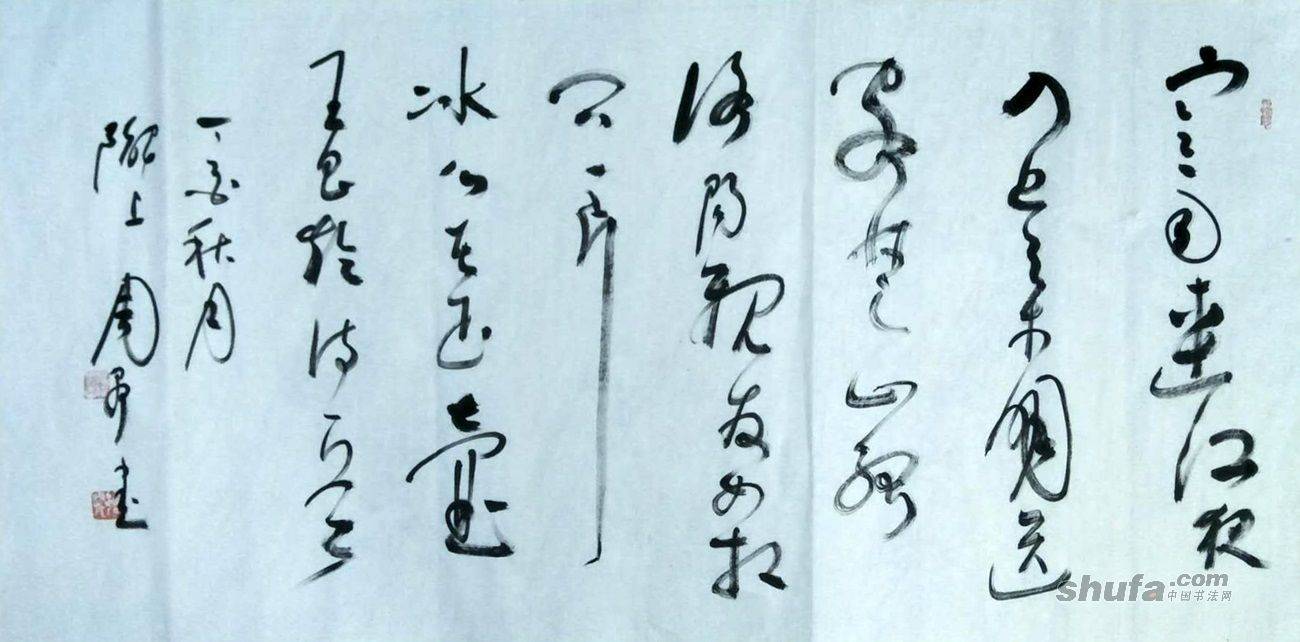 寒雨連江夜
入吴平明送
客楚山孤
洛陽親友如相
问一片
冰心在玉壺
王昌龄诗一首
秋月
隴上周书
shufa.com
中国书法网